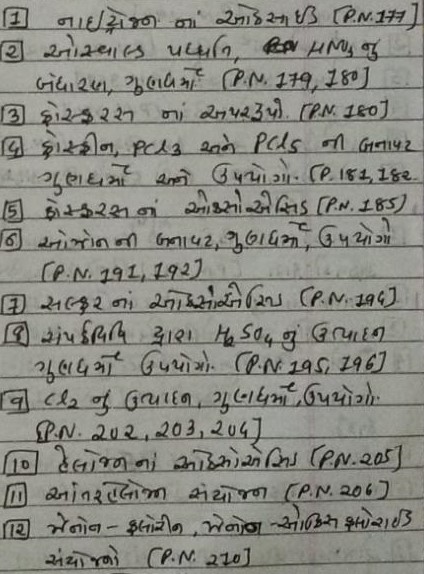 [1] નાઇટ્રોજન નાં ઓક્સાઇડ [P.N.177]
[2] ઓસ્વાલ્ડ પધ્ધતિ, HNO3 નું
બંધારણ, ગુણધર્મો [P.N. 179, 180]
[3] ફોસ્ફરસ નાં અપરરૂપો. [P.N. 180]
[4] ફોસ્ફીન, PCl3 અને PCl5 ની બનાવટ
ગુણધર્મો અને ઉપયોગો. [P. 181, 182
[5] ફોસ્ફરસ નાં ઓક્સોએસિડ [P.N. 185]
[6] ઓઝોન ની બનાવટ, ગુણધર્મો, ઉપયોગો
[P.N. 191, 192]
[7] સલ્ફર નાં ઓક્સોએસિડ [P.N. 194]
[8] સંપર્કવિધિ દ્વારા H2SO4 નું ઉત્પાદન
ગુણધર્મો ઉપયોગો. [P.N. 195, 196]
[9] Cl2 નું ઉત્પાદન, ગુણધર્મો, ઉપયોગો.
[P.N. 202, 203, 204]
[10] હેલોજન નાં ઓક્સોએસિડ [P.N. 205]
[11] આંતરહેલોજન સંયોજન [P.N. 206]
[12] ઝેનોન - ફ્લોરીન, ઝેનોન - ઓક્સિ ફ્લોરાઇડ
સંયોજનો [P.N. 210]